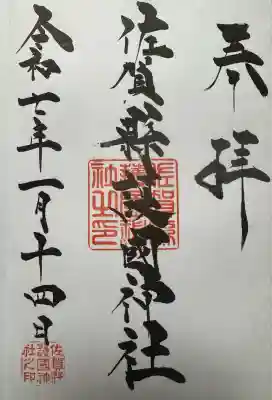 奉拝
佐賀縣護國神社
令和七年一月十四日
佐賀縣護國神社之印
佐賀縣護國神社之印